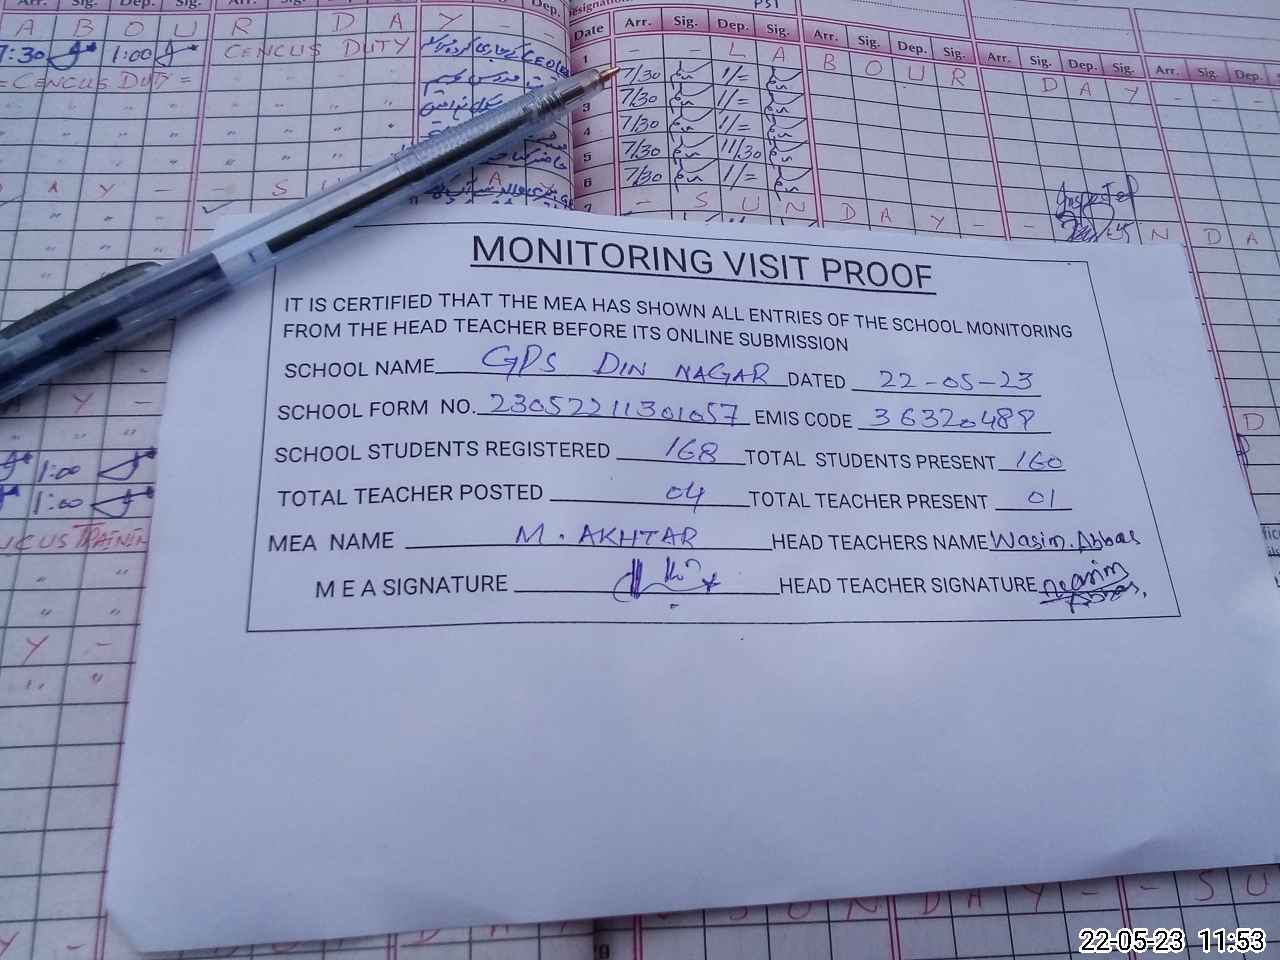 Arr. Sig. Dep. Sig. Arr. Sig. Dep. Sig. Arr. Sig. Dep.
A B O U R D A Y -
7:30 1:00 CENCUS DUTY
= CENCUS DUTY =
A Y - - S
Y -
1:00
1:00
TRAINI
Y -
PST
Date Arr. Sig. Dep. Sig. Arr. Sig. Dep. Sig. Arr. Sig. Dep. Sig. Arr. Sig. Dep.
1 - - L A B O U R D A Y - - -
7/30 1/=
3 7/30 1/=
4 7/30 1/=
5 7/30 11/30
6 7/30 1/=
7 - S U N D A Y - - S U N D A
MONITORING VISIT PROOF
IT IS CERTIFIED THAT THE MEA HAS SHOWN ALL ENTRIES OF THE SCHOOL MONITORING
FROM THE HEAD TEACHER BEFORE ITS ONLINE SUBMISSION
SCHOOL NAME GPS DIN NAGAR DATED 22-05-23
SCHOOL FORM NO. 23052211301057 EMIS CODE 36320489
SCHOOL STUDENTS REGISTERED 168 TOTAL STUDENTS PRESENT 160
TOTAL TEACHER POSTED 04 TOTAL TEACHER PRESENT 01
MEA NAME M. AKHTAR HEAD TEACHERS NAME Wasim.Abbas
M E A SIGNATURE HEAD TEACHER SIGNATURE
S U N D A Y - - S U
22-05-23 11:53